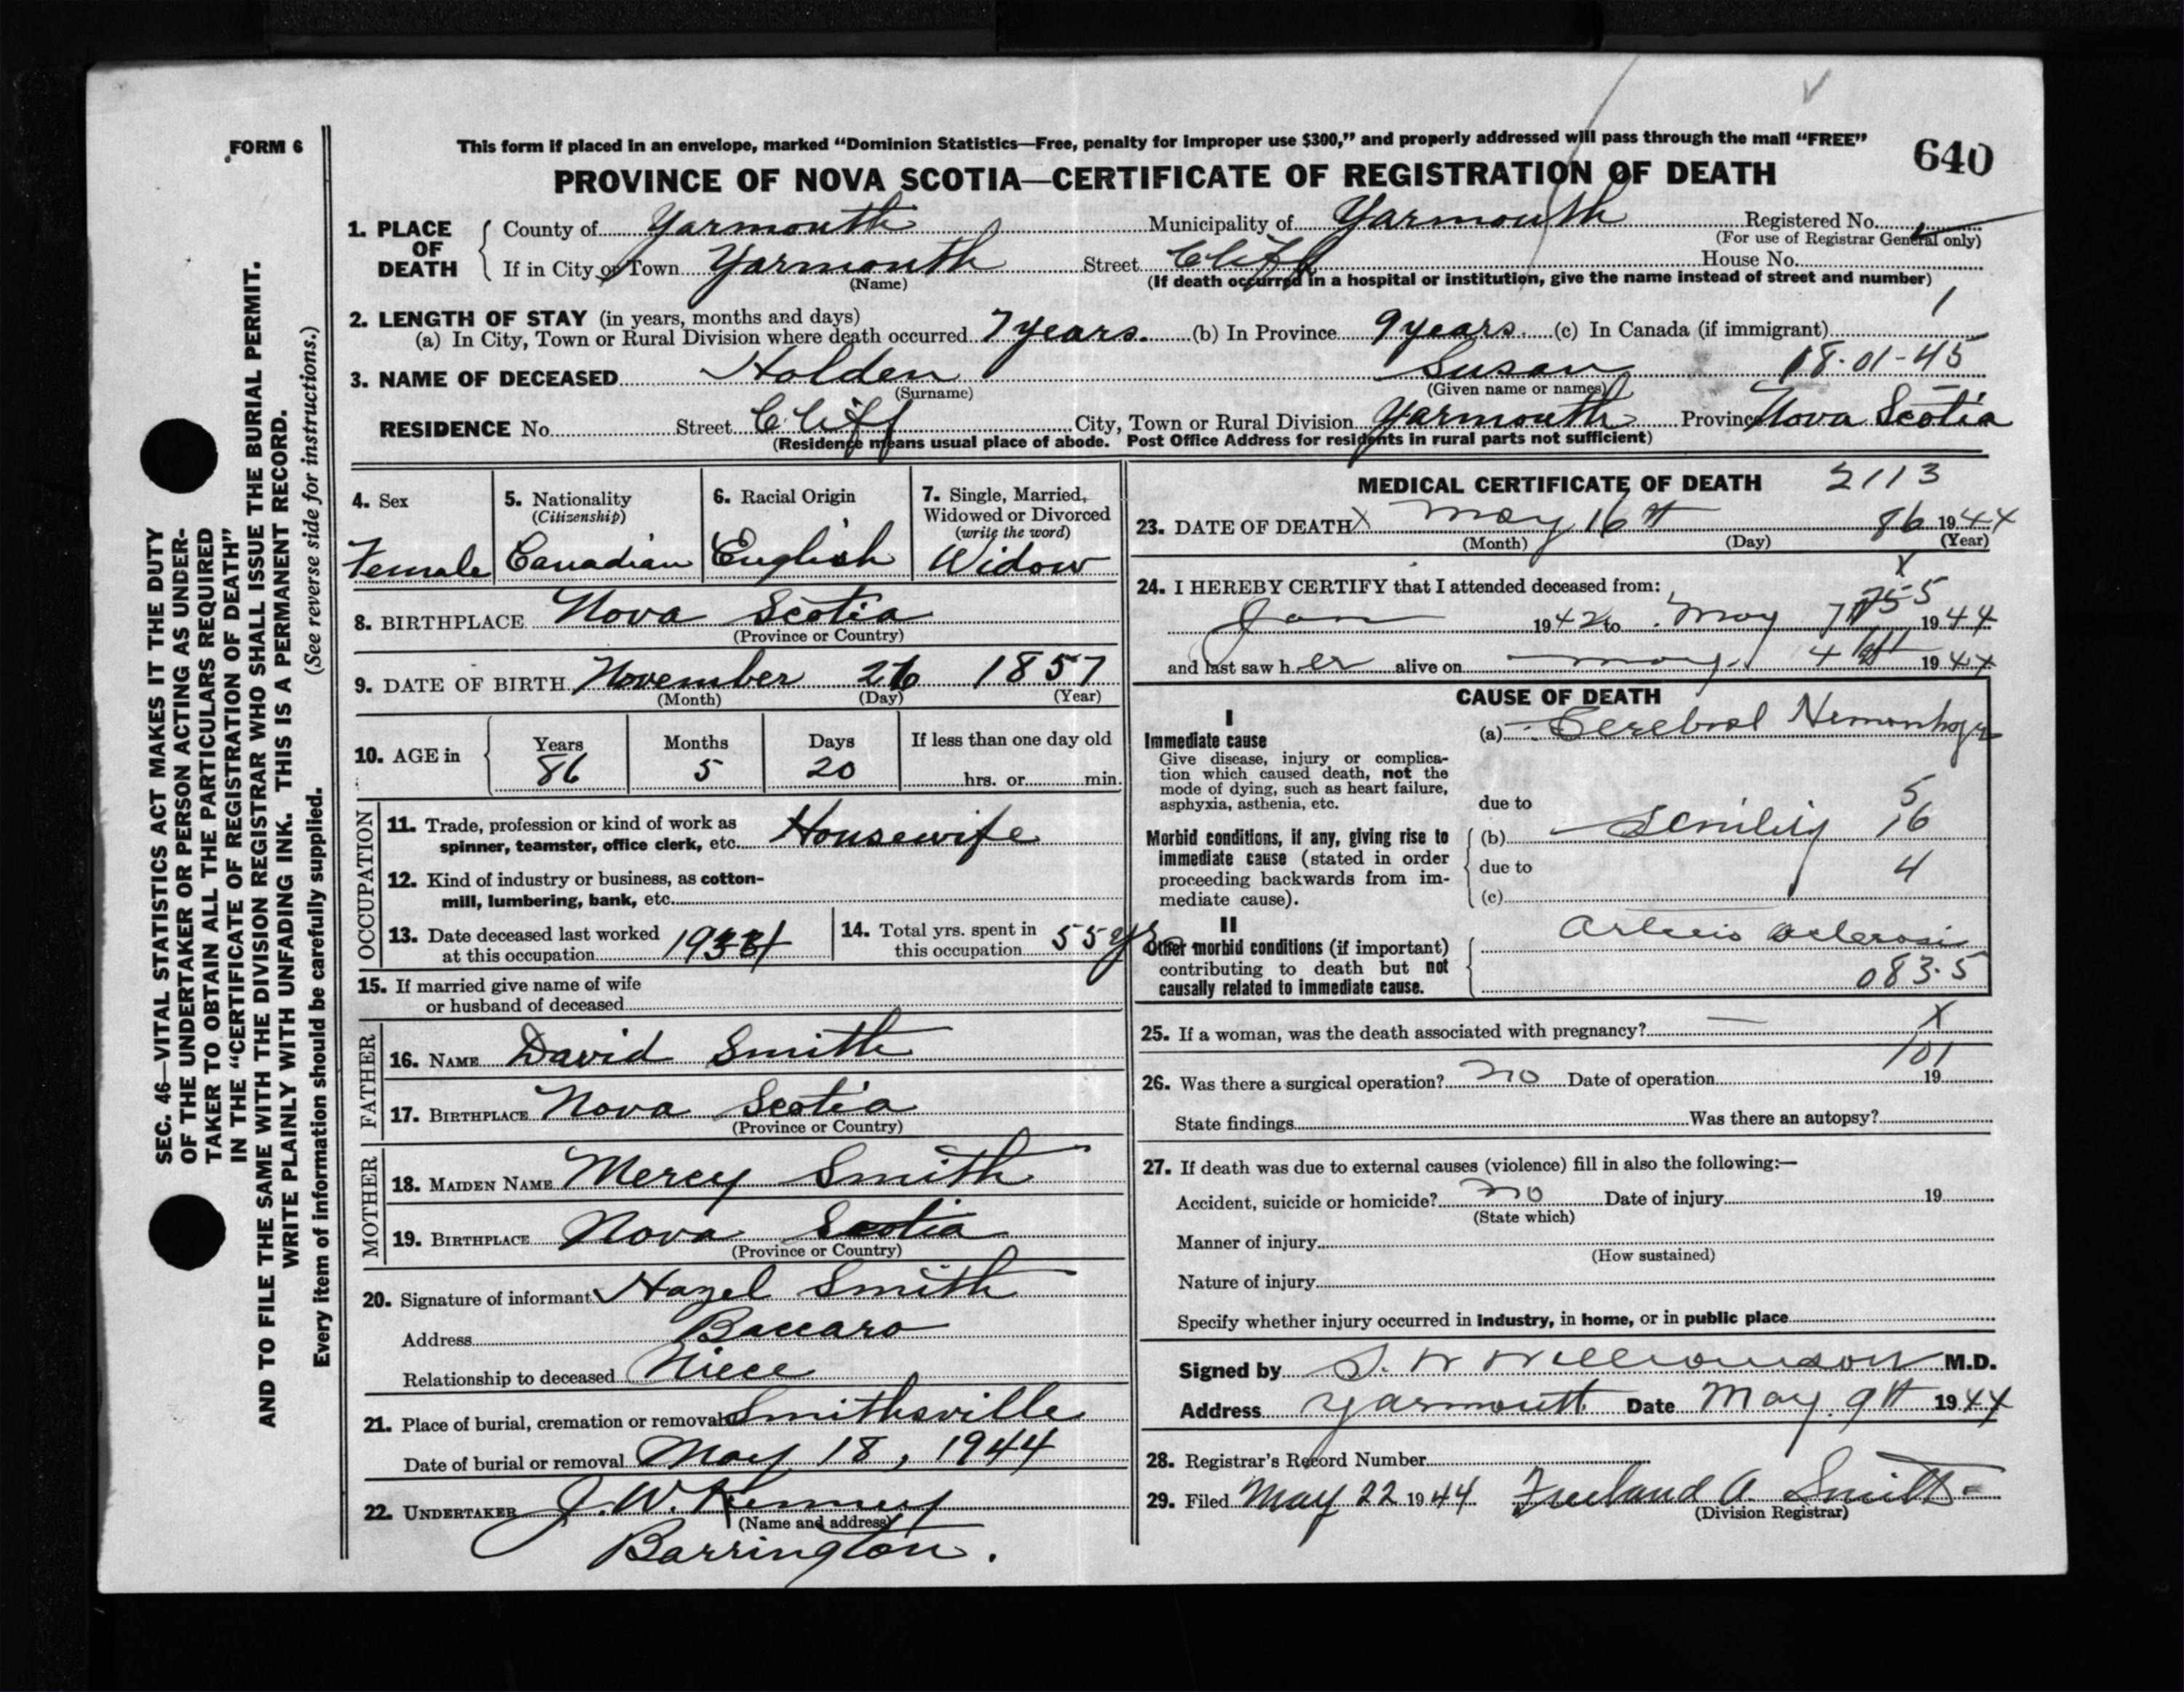 FORM 6
This form if placed in an envelope, marked "Dominion Statistics—Free, penalty for improper use $300," and properly addressed will pass through the mail "FREE"
640
PROVINCE OF NOVA SCOTIA—CERTIFICATE OF REGISTRATION OF DEATH
1. PLACE OF DEATH
County of Yarmouth Municipality of Yarmouth Registered No.
(For use of Registrar General only)
If in City or Town Yarmouth Street Cliff House No.
(Name) (If death occurred in a hospital or institution, give the name instead of street and number)
1
2. LENGTH OF STAY (in years, months and days)
(a) In City, Town or Rural Division where death occurred 7 years. (b) In Province 9 years. (c) In Canada (if immigrant)
3. NAME OF DECEASED Holden Susan 18-01-45
(Surname) (Given name or names)
RESIDENCE No. Street Cliff City, Town or Rural Division Yarmouth Province Nova Scotia
(Residence means usual place of abode. Post Office Address for residents in rural parts not sufficient)
4. Sex
Female
5. Nationality
(Citizenship)
Canadian
6. Racial Origin
English
7. Single, Married,
Widowed or Divorced
(write the word)
Widow
8. BIRTHPLACE Nova Scotia
(Province or Country)
9. DATE OF BIRTH November 26 1857
(Month) (Day) (Year)
10. AGE in
Years Months Days If less than one day old
86 5 20 hrs. or min.
OCCUPATION
11. Trade, profession or kind of work as
spinner, teamster, office clerk, etc. Housewife
12. Kind of industry or business, as cotton-
mill, lumbering, bank, etc.
13. Date deceased last worked
at this occupation
14. Total yrs. spent in
this occupation 55 yrs
15. If married give name of wife
or husband of deceased
FATHER
16. NAME David Smith
17. BIRTHPLACE Nova Scotia
(Province or Country)
MOTHER
18. MAIDEN NAME Mercy Smith
19. BIRTHPLACE Nova Scotia
(Province or Country)
20. Signature of informant Hazel Smith
Address Baccaro
Relationship to deceased Niece
21. Place of burial, cremation or removal Smithsville
Date of burial or removal May 18, 1944
22. UNDERTAKER J. W. Kenney
(Name and address)
Barrington.
MEDICAL CERTIFICATE OF DEATH 2113
23. DATE OF DEATH X May 16th 86 1944
(Month) (Day) (Year)
X
24. I HEREBY CERTIFY that I attended deceased from:
Jan 1942 to May 1944
and last saw her alive on May 1944
CAUSE OF DEATH
I
Immediate cause
Give disease, injury or complica-
tion which caused death, not the
mode of dying, such as heart failure,
asphyxia, asthenia, etc.
(a) Cerebral Hemorrhage
due to 5
Morbid conditions, if any, giving rise to
immediate cause (stated in order
proceeding backwards from im-
mediate cause).
(b) Senility 16
due to 4
(c)
II
Other morbid conditions (if important)
contributing to death but not
causally related to immediate cause.
Arterio sclerosis
083.5
25. If a woman, was the death associated with pregnancy? — X
101
26. Was there a surgical operation? no Date of operation 19
State findings Was there an autopsy?
27. If death was due to external causes (violence) fill in also the following:—
Accident, suicide or homicide? no Date of injury 19
(State which)
Manner of injury
(How sustained)
Nature of injury
Specify whether injury occurred in industry, in home, or in public place
Signed by S. W Williamson M.D.
Address Yarmouth Date May 9th 1944
28. Registrar's Record Number
29. Filed May 22 1944 Freeland A. Smith
(Division Registrar)
SEC. 46—VITAL STATISTICS ACT MAKES IT THE DUTY
OF THE UNDERTAKER OR PERSON ACTING AS UNDER-
TAKER TO OBTAIN ALL THE PARTICULARS REQUIRED
IN THE "CERTIFICATE OF REGISTRATION OF DEATH"
AND TO FILE THE SAME WITH THE DIVISION REGISTRAR WHO SHALL ISSUE THE BURIAL PERMIT.
WRITE PLAINLY WITH UNFADING INK. THIS IS A PERMANENT RECORD.
Every item of information should be carefully supplied. (See reverse side for instructions.)